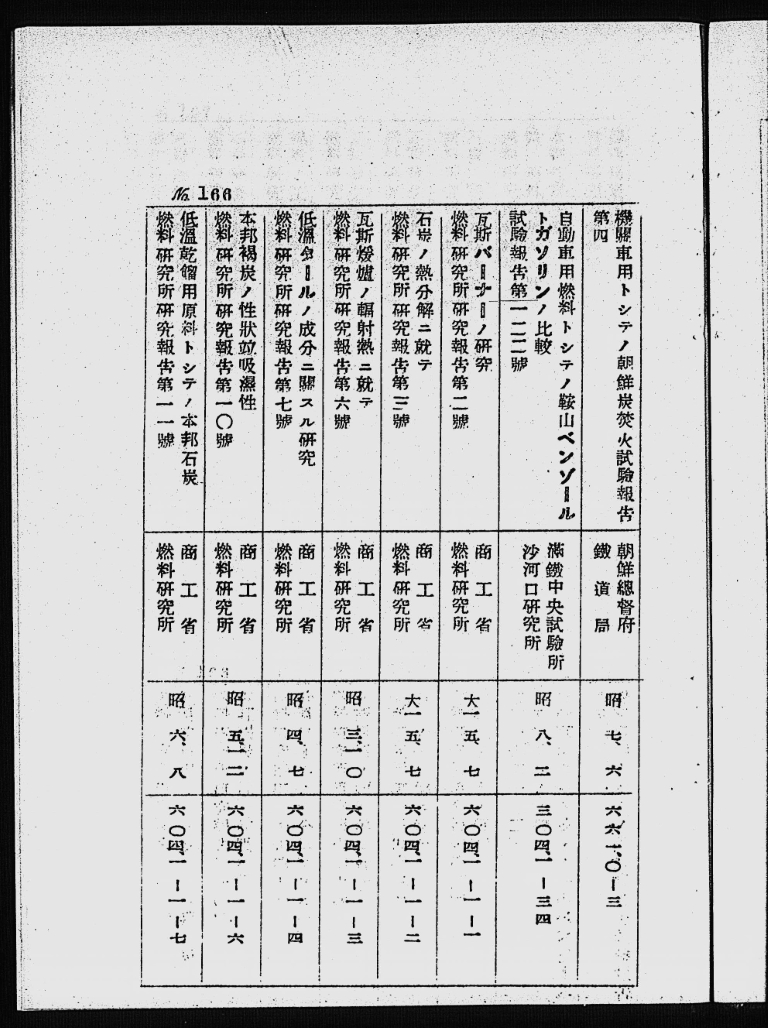 № 166
機關車用トシテノ朝鮮炭焚火試驗報告
第四
朝鮮總督府
鐵道局
昭 七、六
六六一、〇―三
自動車用燃料トシテノ鞍山ベンゾール
トガソリンノ比較
試驗報告第一二二號
滿鐵中央試驗所
沙河口研究所
昭 八、二
三〇四、一―三四
瓦斯バーナーノ研究
燃料研究所研究報告第二號
商工省
燃料研究所
大一五、七
六〇四、一―一―一
石炭ノ熱分解ニ就テ
燃料研究所研究報告第三號
商工省
燃料研究所
大一五、七
六〇四、一―一―二
瓦斯煖爐ノ輻射熱ニ就テ
燃料研究所研究報告第六號
商工省
燃料研究所
昭 三、一〇
六〇四、一―一―三
低溫タールノ成分ニ關スル研究
燃料研究所研究報告第七號
商工省
燃料研究所
昭 四、七
六〇四、一―一―四
本邦褐炭ノ性狀竝吸濕性
燃料研究所研究報告第一〇號
商工省
燃料研究所
昭 五、一二
六〇四、一―一―六
低溫乾餾用原料トシテノ本邦石炭
燃料研究所研究報告第一一號
商工省
燃料研究所
昭 六、八
六〇四、一―一―七